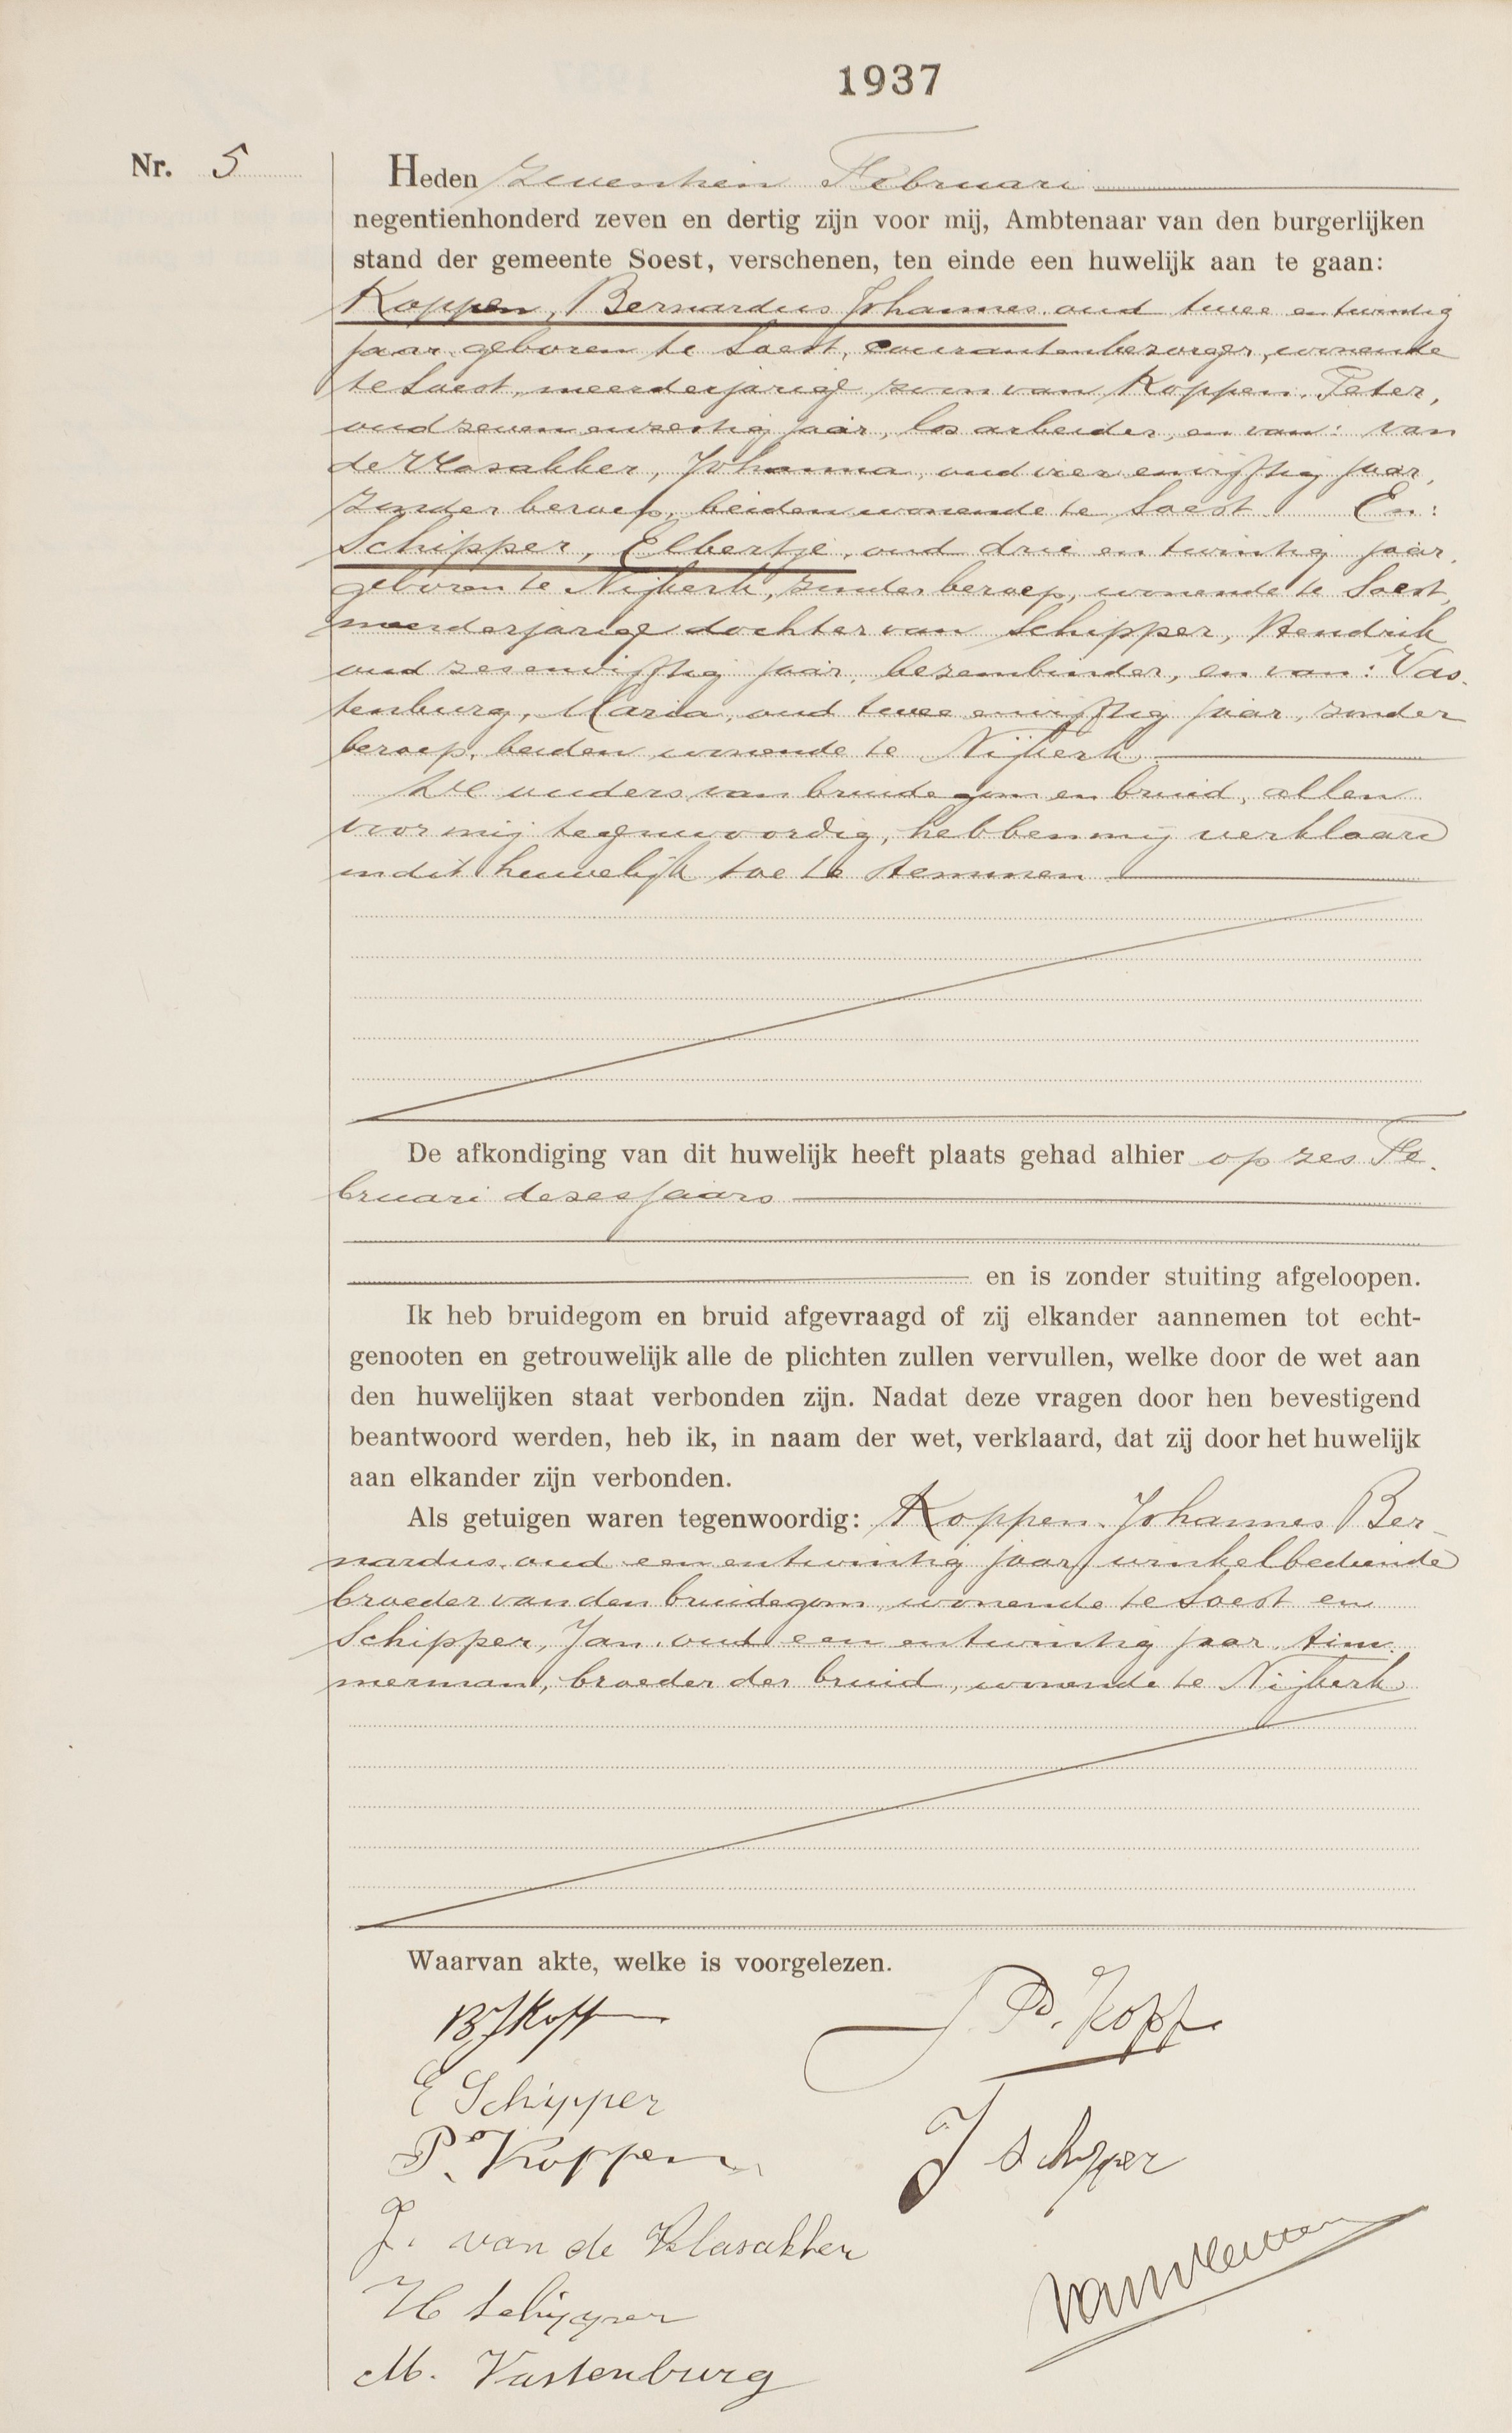 1937
Nr. 5
Heden zeventien Februari
negentienhonderd zeven en dertig zijn voor mij, Ambtenaar van den burgerlijken
stand der gemeente Soest, verschenen, ten einde een huwelijk aan te gaan:
Koppen, Bernardus Johannes, oud twee en twintig
jaar, geboren te Soest, courantenbezorger, wonende
te Soest, meerderjarige zoon van Koppen, Peter,
oud zeven en zestig jaar, los arbeider, en van: van
de Vlasakker, Johanna, oud vier en vijftig jaar,
zonder beroep, beiden wonende te Soest. En:
Schipper, Elbertje, oud drie en twintig jaar,
geboren te Nijkerk, zonder beroep, wonende te Soest,
meerderjarige dochter van Schipper, Hendrik
oud zes en vijftig jaar, bezembinder, en van: Vas-
tenburg, Maria, oud twee en vijftig jaar, zonder
beroep, beiden wonende te Nijkerk.
De ouders van bruidegom en bruid, allen
voor mij tegenwoordig, hebben mij verklaard
in dit huwelijk toe te stemmen
De afkondiging van dit huwelijk heeft plaats gehad alhier op zes Fe-
bruari dezes jaars
en is zonder stuiting afgeloopen.
Ik heb bruidegom en bruid afgevraagd of zij elkander aannemen tot echt-
genooten en getrouwelijk alle de plichten zullen vervullen, welke door de wet aan
den huwelijken staat verbonden zijn. Nadat deze vragen door hen bevestigend
beantwoord werden, heb ik, in naam der wet, verklaard, dat zij door het huwelijk
aan elkander zijn verbonden.
Als getuigen waren tegenwoordig: Koppen, Johannes Ber-
nardus, oud een en twintig jaar, winkelbediende
broeder van den bruidegom, wonende te Soest en
Schipper, Jan, oud een en twintig jaar, tim-
merman, broeder der bruid, wonende te Nijkerk
Waarvan akte, welke is voorgelezen.
E Schipper
P. Koppen
J Schipper
J. van de Vlasakker
H Schipper
M. Vastenburg